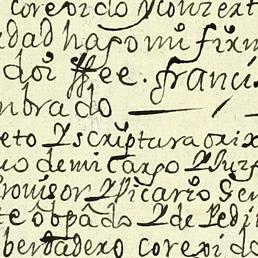 corexido y conzert
dad hago mi firm
doi ffee. franci
nbrado
eto Y scriptura orix
uo de mi cargo Y
Provisor Y Vicario Gen
te obpado Y de Pedi
berdadero corexido